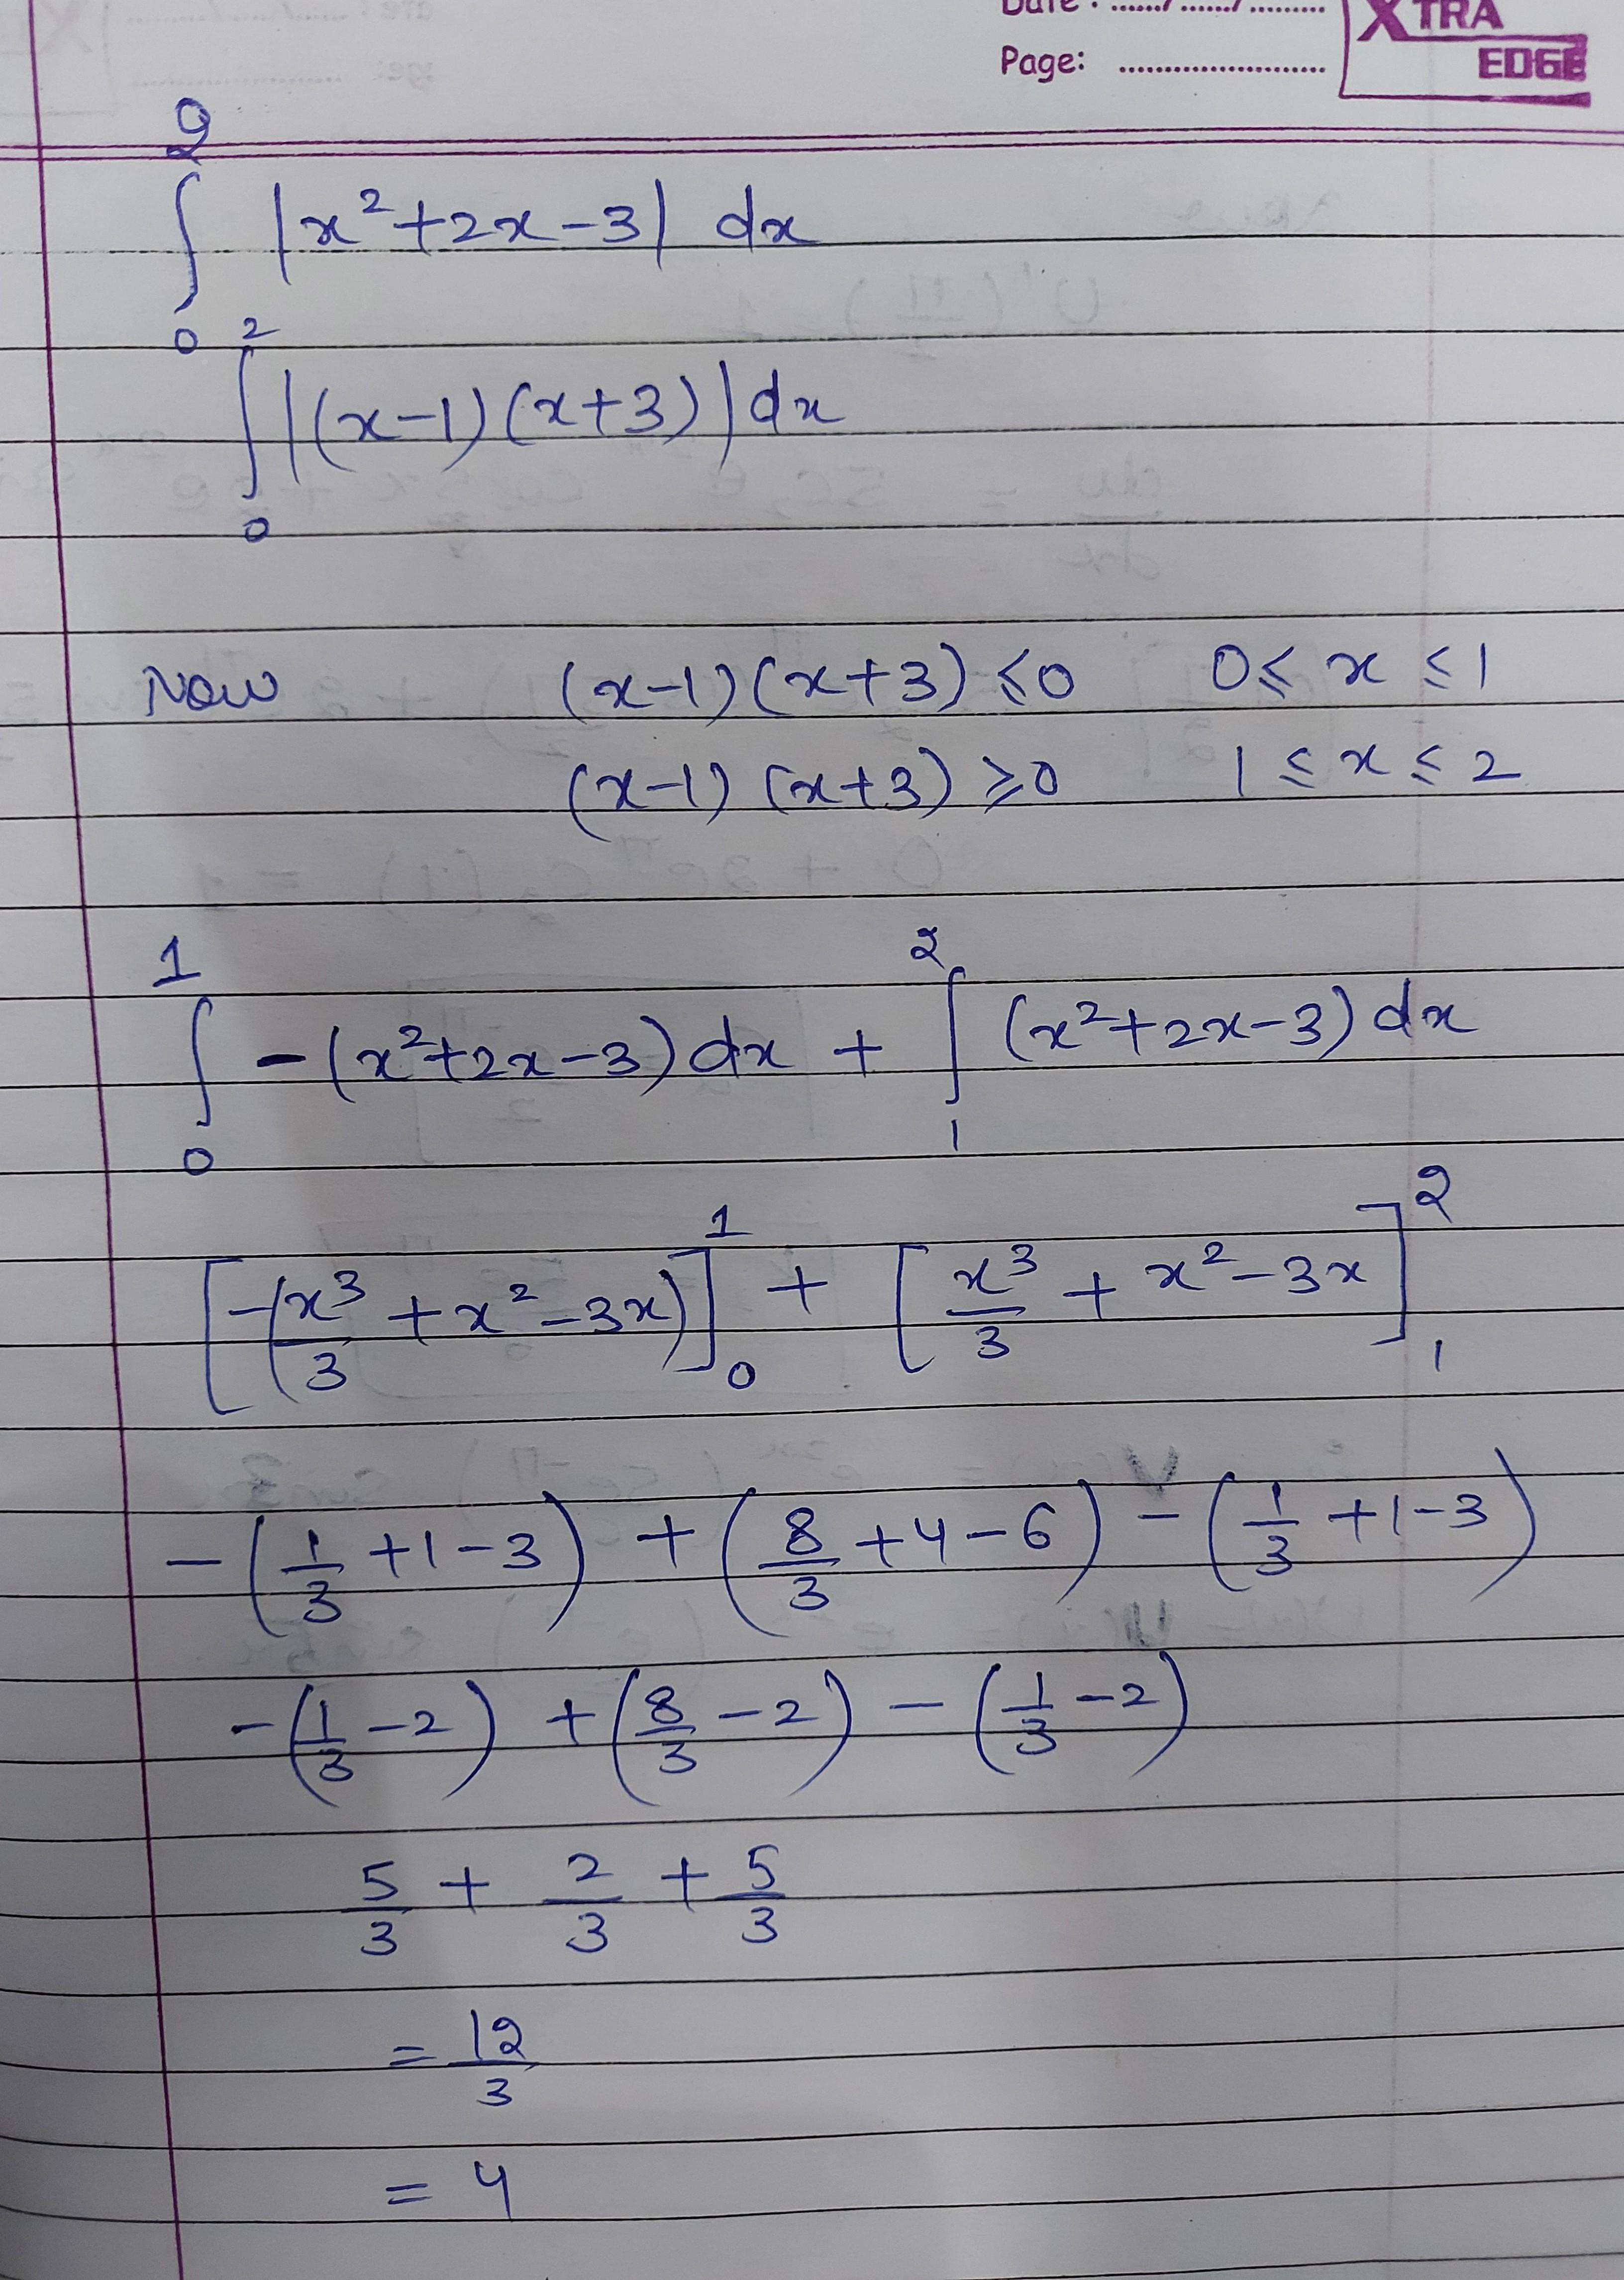 Date : ....../ ....../ .........
Page: .........................
XTRA
EDGE
2
∫ |x²+2x-3| dx
0
2
∫ |(x-1)(x+3)| dx
0
Now (x-1)(x+3) ≤ 0 0 ≤ x ≤ 1
(x-1)(x+3) ≥ 0 1 ≤ x ≤ 2
1 2
∫ -(x²+2x-3) dx + ∫ (x²+2x-3) dx
0 1
[-(x³/3 + x² - 3x)]₀¹ + [x³/3 + x² - 3x]₁²
-(1/3 + 1 - 3) + (8/3 + 4 - 6) - (1/3 + 1 - 3)
-(1/3 - 2) + (8/3 - 2) - (1/3 - 2)
5/3 + 2/3 + 5/3
= 12/3
= 4